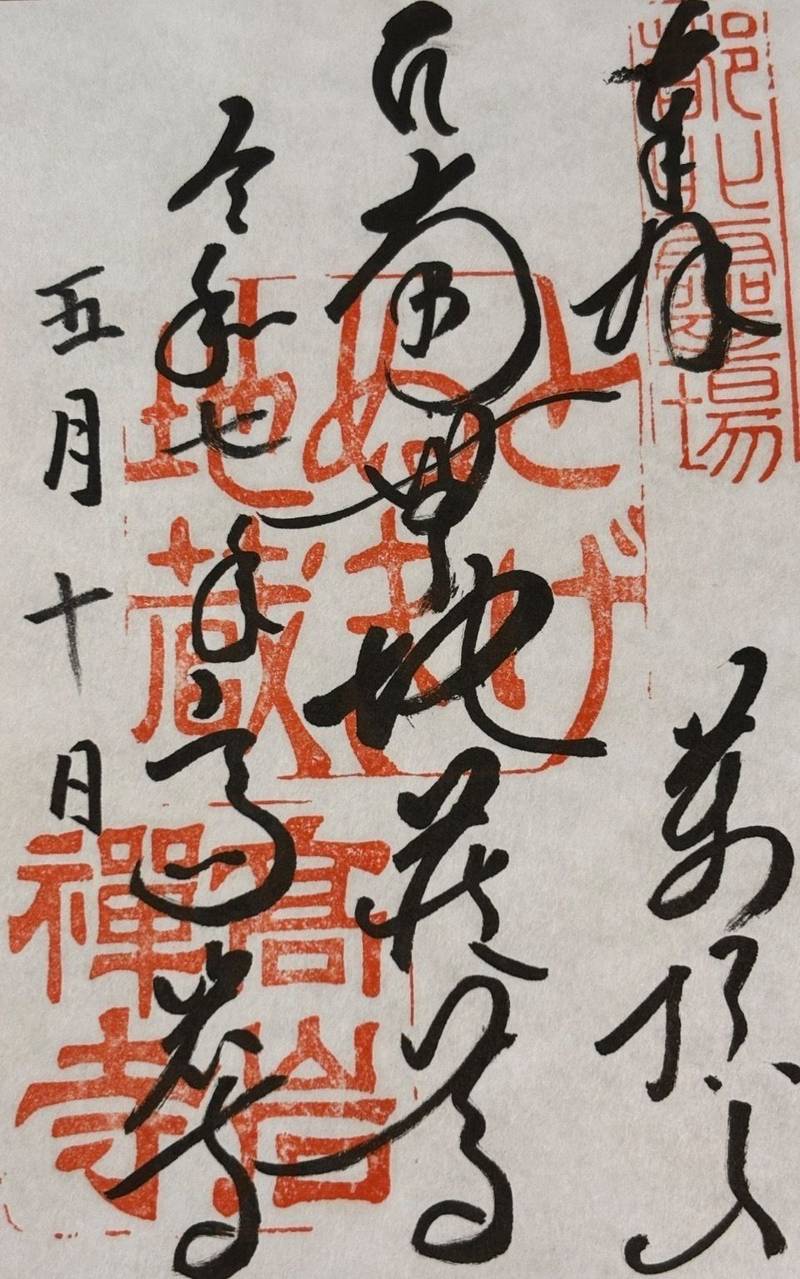 奉拝
萬頂山
南無地蔵尊
令和七年
高岩寺
五月十日
都北霊場
とげ
ぬき
地蔵
髙岩
禪寺